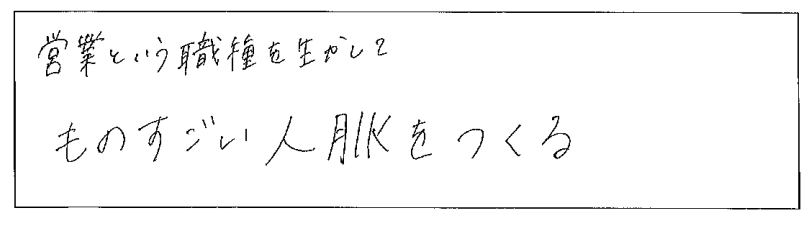 営業という職種を生かして
ものすごい人脈をつくる